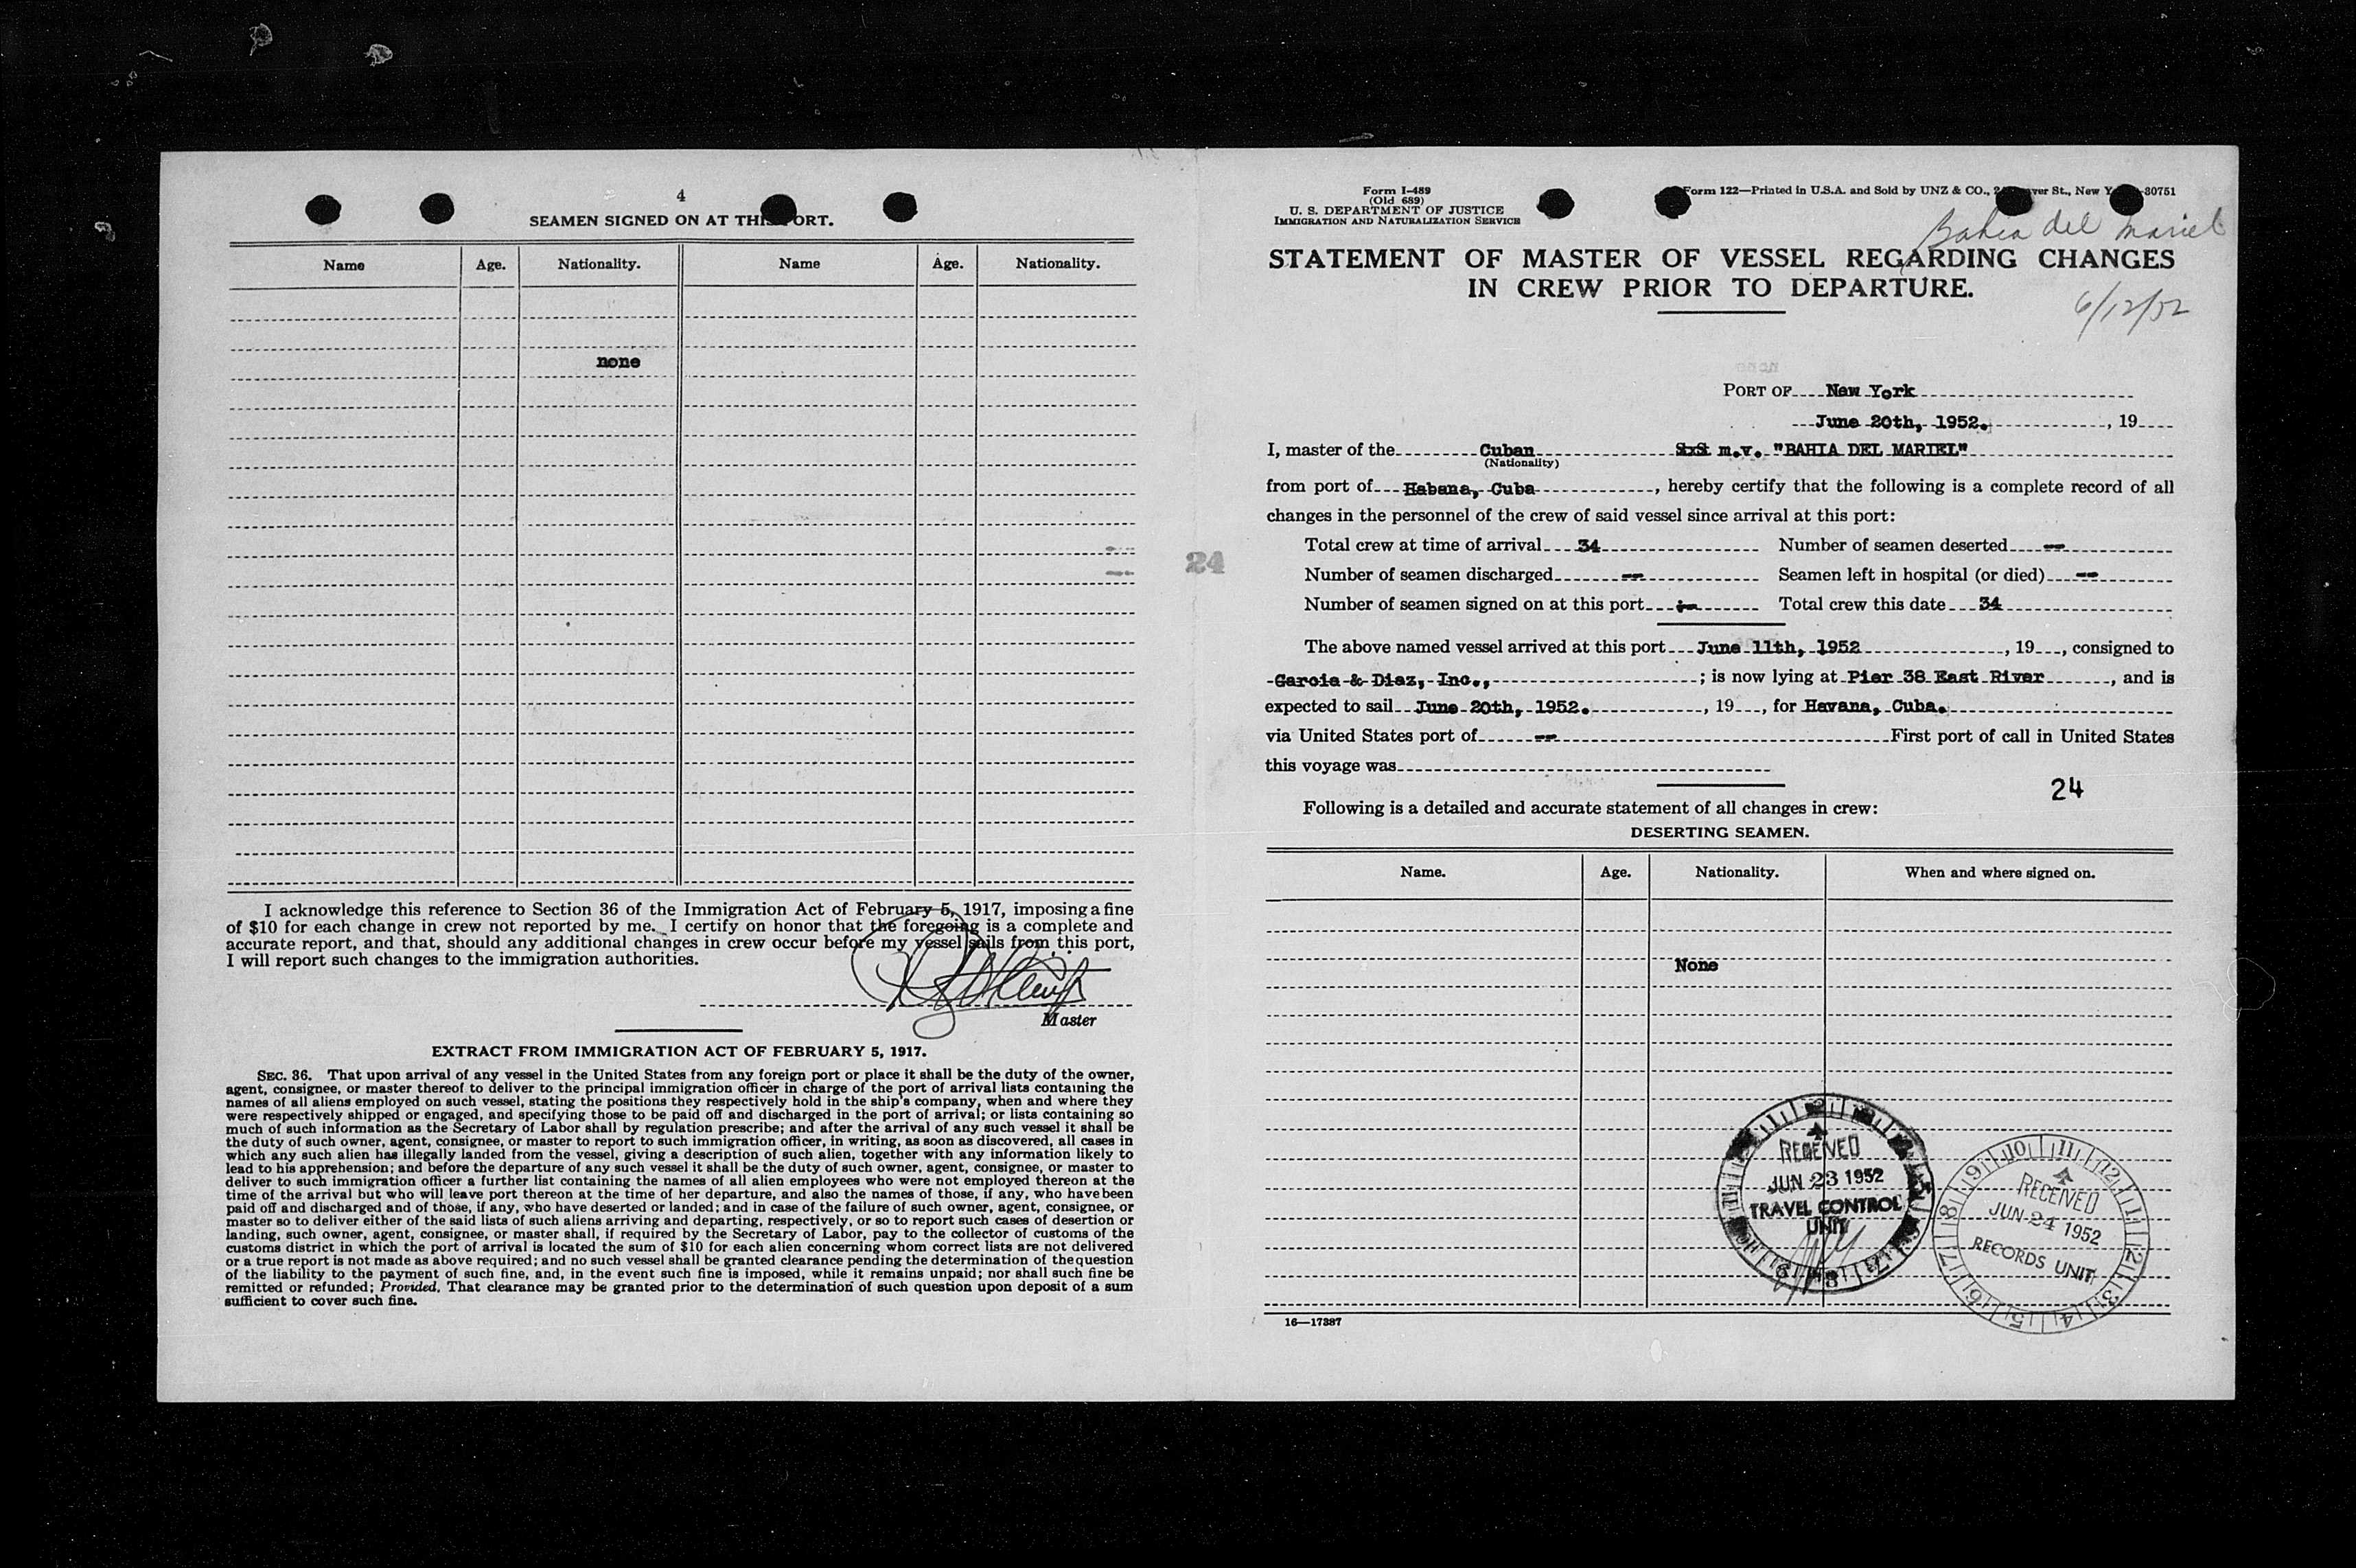 4
SEAMEN SIGNED ON AT THIS PORT.
Name Age. Nationality. Name Age. Nationality.
none
I acknowledge this reference to Section 36 of the Immigration Act of February 5, 1917, imposing a fine
of $10 for each change in crew not reported by me. I certify on honor that the foregoing is a complete and
accurate report, and that, should any additional changes in crew occur before my vessel sails from this port,
I will report such changes to the immigration authorities.
Master
EXTRACT FROM IMMIGRATION ACT OF FEBRUARY 5, 1917.
SEC. 36. That upon arrival of any vessel in the United States from any foreign port or place it shall be the duty of the owner,
agent, consignee, or master thereof to deliver to the principal immigration officer in charge of the port of arrival lists containing the
names of all aliens employed on such vessel, stating the positions they respectively hold in the ship's company, when and where they
were respectively shipped or engaged, and specifying those to be paid off and discharged in the port of arrival; or lists containing so
much of such information as the Secretary of Labor shall by regulation prescribe; and after the arrival of any such vessel it shall be
the duty of such owner, agent, consignee, or master to report to such immigration officer, in writing, as soon as discovered, all cases in
which any such alien has illegally landed from the vessel, giving a description of such alien, together with any information likely to
lead to his apprehension; and before the departure of any such vessel it shall be the duty of such owner, agent, consignee, or master to
deliver to such immigration officer a further list containing the names of all alien employees who were not employed thereon at the
time of the arrival but who will leave port thereon at the time of her departure, and also the names of those, if any, who have been
paid off and discharged and of those, if any, who have deserted or landed; and in case of the failure of such owner, agent, consignee, or
master so to deliver either of the said lists of such aliens arriving and departing, respectively, or so to report such cases of desertion or
landing, such owner, agent, consignee, or master shall, if required by the Secretary of Labor, pay to the collector of customs of the
customs district in which the port of arrival is located the sum of $10 for each alien concerning whom correct lists are not delivered
or a true report is not made as above required; and no such vessel shall be granted clearance pending the determination of the question
of the liability to the payment of such fine, and, in the event such fine is imposed, while it remains unpaid; nor shall such fine be
remitted or refunded; Provided, That clearance may be granted prior to the determination of such question upon deposit of a sum
sufficient to cover such fine.
24
Form I-489
(Old 689)
U. S. DEPARTMENT OF JUSTICE
IMMIGRATION AND NATURALIZATION SERVICE
Form 122—Printed in U.S.A. and Sold by UNZ & CO., St., New 30751
Bahia del Mariel
STATEMENT OF MASTER OF VESSEL REGARDING CHANGES
IN CREW PRIOR TO DEPARTURE.
6/12/52
PORT OF New York
June 20th, 1952. , 19
I, master of the Cuban SxS m.v. "BAHIA DEL MARIEL"
(Nationality)
from port of Habana, Cuba , hereby certify that the following is a complete record of all
changes in the personnel of the crew of said vessel since arrival at this port:
Total crew at time of arrival 34 Number of seamen deserted --
Number of seamen discharged -- Seamen left in hospital (or died) --
Number of seamen signed on at this port -- Total crew this date 34
The above named vessel arrived at this port June 11th, 1952 , 19 , consigned to
Garcia & Diaz, Inc., ; is now lying at Pier 38 East River , and is
expected to sail June 20th, 1952. , 19 , for Havana, Cuba.
via United States port of -- First port of call in United States
this voyage was
24
Following is a detailed and accurate statement of all changes in crew:
DESERTING SEAMEN.
Name. Age. Nationality. When and where signed on.
None
RECEIVED
JUN 23 1952
TRAVEL CONTROL
UNIT
RECEIVED
JUN 24 1952
RECORDS UNIT
16—17387